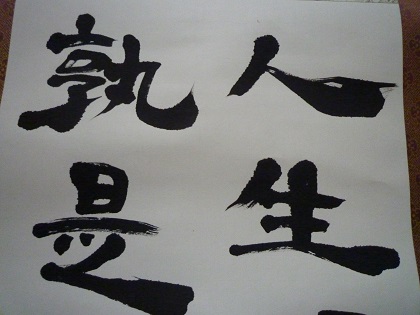 人生
孰是